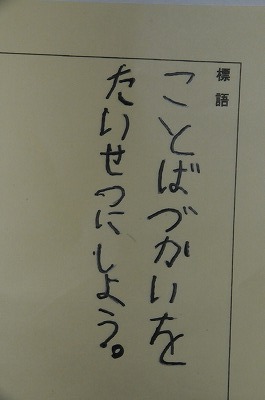 標語
ことばづかいを
たいせつにしよう。